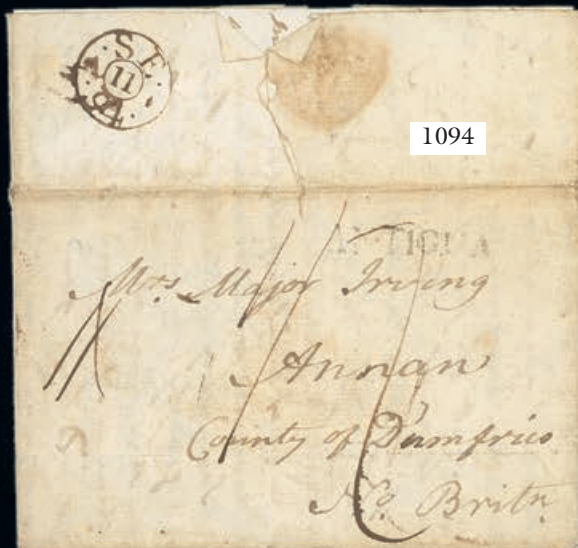 SE
11
1094
ANTIGUA
Mrs Major Irving
Annan
County of Dumfries
No. Britn